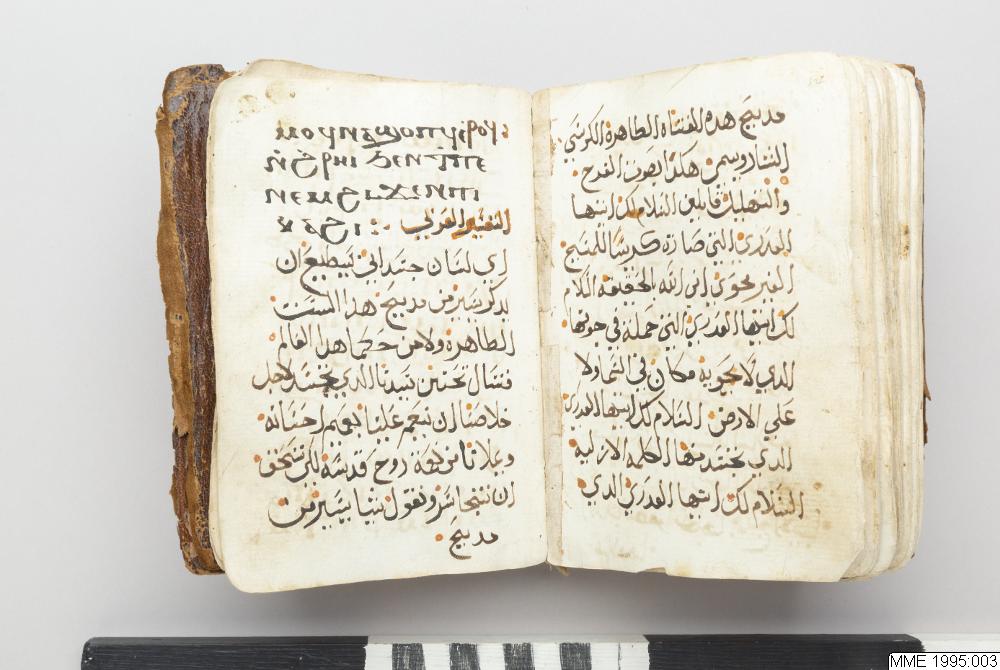 ⲙⲟⲩⲛⲉϣⲟⲡⲓ ⲉⲣⲟⲩ
ⲛ̀ϩ̀ⲣⲏⲓ ϧⲉⲛ ⲧⲫⲉ
ⲛⲉⲙ ϩⲓϫⲉⲛ ⲡⲓ
ⲕⲁϩⲓ : التفسير العربي
اي لسان جسداني يستطيع ان
يدكر يسير من مديح هدا الست
الطاهرة ولا من حكما هدا العالم
فنسال تحنن سيدنا الدي تجسد لاجل
خلاصنا ان ينعم علينا بعميم احسانه
ويملانا من نعمة روح قدسه لكي نستحق
ان ونقول شيا يسير من
مديح
مديح هده الفتاه الطاهرة الكرسي
هكدا بصوت الفرح
والتهليل قايلين السلام لك ايتها
العدري التي صارة كرسيا للمسيح
الغير محوي ابن الله الحقيقه السلام
لك ايتها العدري التي حملة في جوفها
الدي لا يحويه مكان في السما ولا
علي الارض السلام لك ايتها العدري
الدي تجسد منها الكلمه الازليه
السلام لك ايتها العدري الدي
MME 1995:003